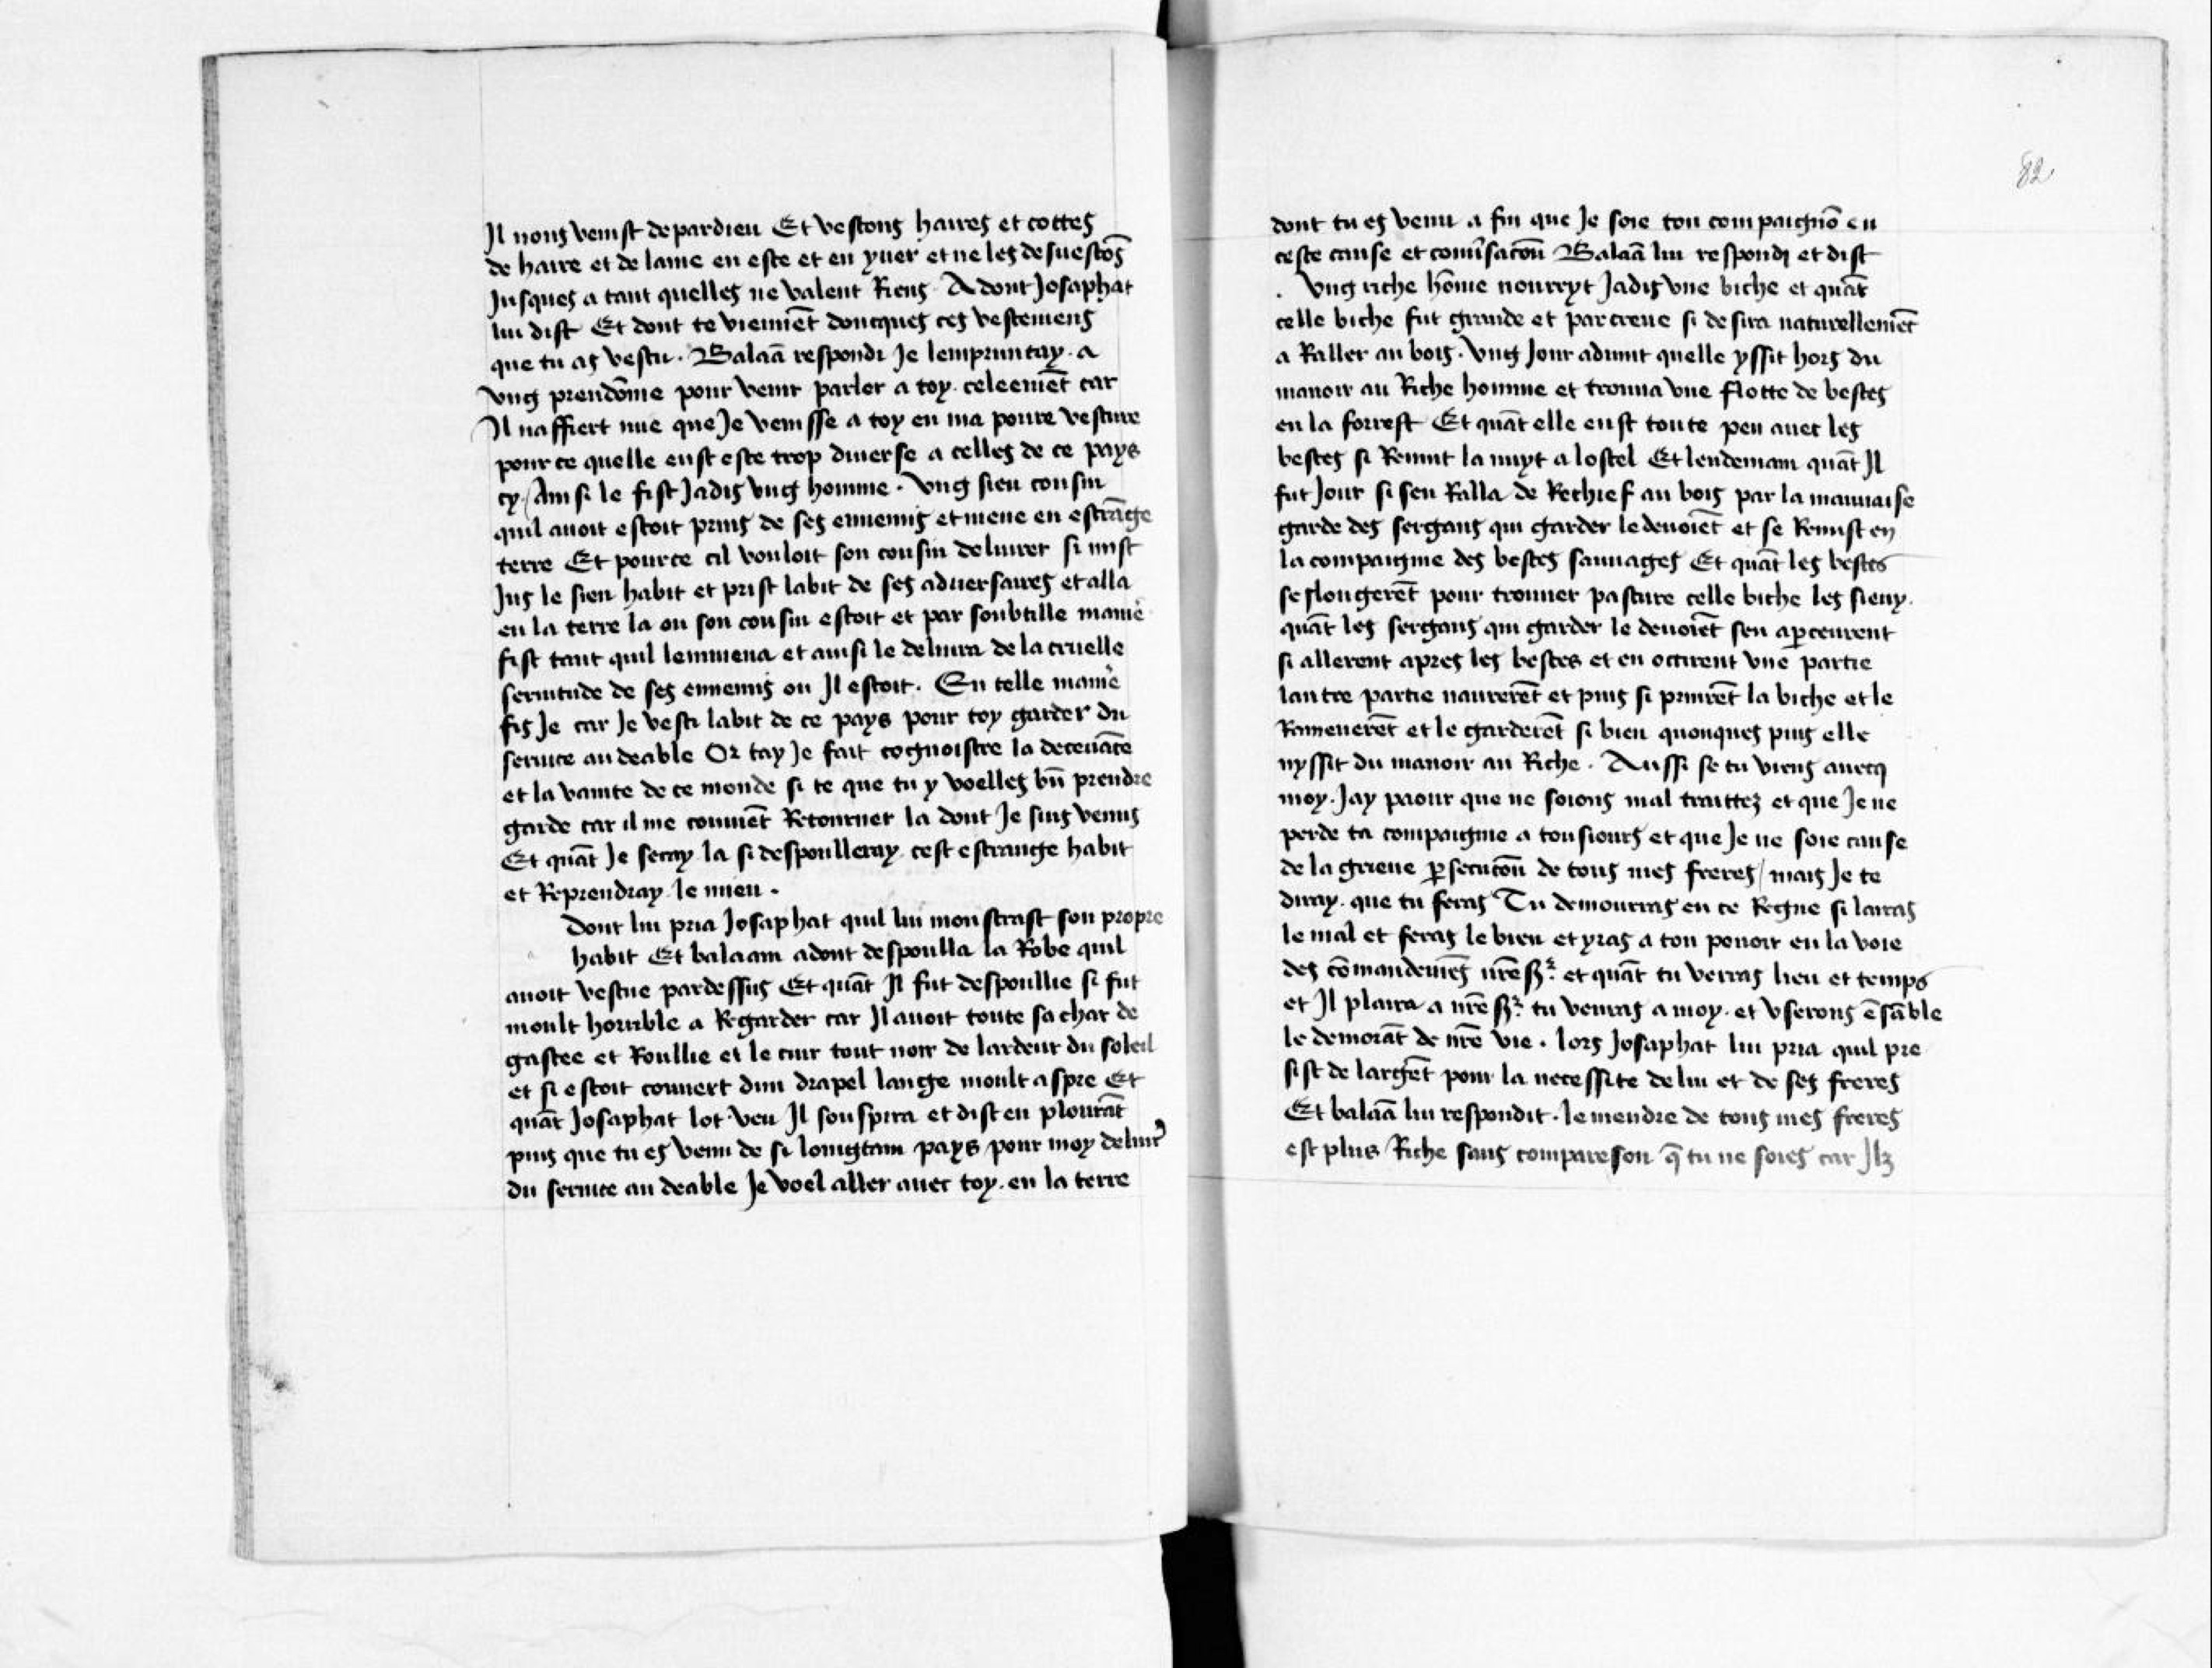 Il nous venist de par dieu Et vestons haires et cottes
de haire et de laine en este et en yuer et ne les desuestōs
Jusques a tant quelles ne valent Riens Adont Josaphat
lui dist Et dont te viennēt doncques ces vestemens
que tu as vestu. Balaā respondi Je lempruntay. a
vng preudōme pour venir parler a toy. celeemēt car
Il naffiert mie que Je venisse a toy en ma poure vesture
pour ce quelle eust este trop diuerse a celles de ce pays
cy / Ainsi le fist Jadis vng homme. vng sien cousin
quil auoit estoit prins de ses ennemis et mene en estrāge
terre Et pource cil vouloit son cousin deliurer si mist
Jus le sien habit et prist labit de ses aduersaires et alla
en la terre la ou son cousin estoit et par soubtille manie
fist tant quil lemmena et ainsi le deliura de la cruelle
seruitude de ses ennemis ou Il estoit. En telle manie
fis Je car Je vesti labit de ce pays pour toy garder du
seruice au deable Or tay Je fait cognoistre la deceuāce
et la vanite de ce monde si te que tu y voelles bn̄ prendre
garde car il me conuiēt Retourner la dont Je suis venus
Et quāt Je seray la si despoulleray cest estrange habit
et Reprendray le mien.
Dont lui pria Josaphat quil lui monstrast son propre
habit Et balaam adont despoulla la Robe quil
auoit vestue pardessus Et quāt Il fut despoullie si fut
moult horrible a Regarder car Il auoit toute sa char de
gastee et Roullie et le cuir tout noir de lardeur du soleil
et si estoit couuert dun drapel lange moult aspre Et
quāt Josaphat lot veu Il souspira et dist en plourāt
puis que tu es venu de si loingtain pays pour moy deliur
du seruice au deable Je voel aller auec toy. en la terre
82
dont tu es venu a fin que Je soie ton compaignō en
ceste cause et cōuersacōn Balaā lui respondy et dist
. Vng riche hōme nourryt Jadis vne biche et quāt
celle biche fut grande et parcreue si desira naturellemēt
a Raller au bois. Vng Jour aduint quelle yssit hors du
manoir au Riche homme et trouua vne flotte de bestes
en la forrest Et quāt elle eust toute peu auec les
bestes si Reuint la nuyt a lostel Et lendemain quāt Il
fut Jour si sen Ralla de Rechief au bois par la mauuaise
garde des sergans qui garder le deuoiēt et se Remist en
la compaignie des bestes sauuages Et quāt les bestes
seslongerēt pour trouuer pasture celle biche les sieuy.
quāt les sergans qui garder le deuoiēt sen apceurent
si allerent apres les bestes et en occirent vne partie
lautre partie naurerēt et puis si prinrēt la biche et le
Ramenerēt et le garderēt si bien quonques puis elle
nyssit du manoir au Riche. Aussi se tu viens auecq
moy. Jay paour que ne soions mal traittez et que Je ne
perde ta compaignie a tousiours et que Je ne soie cause
de la grieue psecucōn de tous mes freres / mais Je te
diray. que tu feras Tu demourras en ce Regne si lairas
le mal et feras le bien et yras a ton pouoir en la voie
des cōmandemēs nrē sr. et quāt tu verras lieu et temps
et Il plaira a nrē sr. tu venras a moy. et vserons ēsāble
le demorāt de nrē vie. lors Josaphat lui pria quil pre
sist de largēt pour la necessite de lui et de ses freres
Et balaā lui respondit. le mendre de tous mes freres
est plus Riche sans compareson q̄ tu ne soies car Ilz